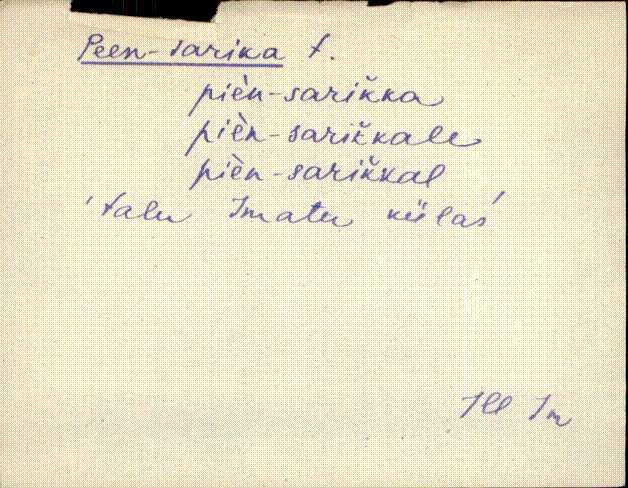 Peen-sarika t.
pièn-sarikka
pièn-sarikkale
pièn-sarikkal
'talu Imatu külas'
Jll Im